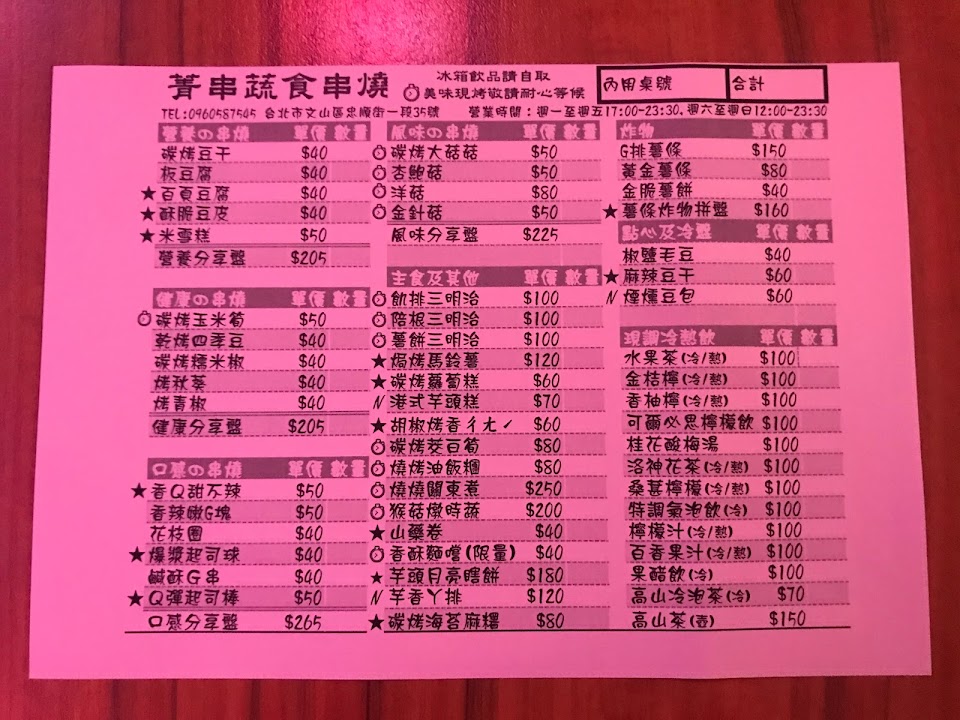 菁串蔬食串燒
冰箱飲品請自取
美味現烤敬請耐心等候
內用桌號
合計
TEL:0960587545 台北市文山區忠順街一段35號 營業時間：週一至週五17:00-23:30,週六至週日12:00-23:30
營養の串燒 單價 數量
碳烤豆干 $40
板豆腐 $40
★百頁豆腐 $40
★酥脆豆皮 $40
★米雪糕 $50
營養分享盤 $205
健康の串燒 單價 數量
碳烤玉米筍 $50
乾烤四季豆 $40
碳烤糯米椒 $40
烤秋葵 $40
烤青椒 $40
健康分享盤 $205
口感の串燒 單價 數量
★香Q甜不辣 $50
香辣嫩G塊 $50
花枝圈 $40
★爆漿起司球 $40
鹹酥G串 $40
★Q彈起司棒 $50
口感分享盤 $265
風味の串燒 單價 數量
碳烤大菇菇 $50
杏鮑菇 $50
洋菇 $80
金針菇 $50
風味分享盤 $225
主食及其他 單價 數量
飢排三明治 $100
陪根三明治 $100
薯餅三明治 $100
★焗烤馬鈴薯 $120
★碳烤蘿蔔糕 $60
N 港式芋頭糕 $70
★胡椒烤香ㄔㄤˊ $60
碳烤茭白筍 $80
燒烤油飯糰 $80
燒燒關東煮 $250
猴菇燉時蔬 $200
★山藥卷 $40
香酥麵嚐(限量) $40
★芋頭月亮瞎餅 $180
N 芋香丫排 $120
★碳烤海苔麻糬 $80
炸物 單價 數量
G排薯條 $150
黃金薯條 $80
金脆薯餅 $40
★薯條炸物拼盤 $160
點心及冷盤 單價 數量
椒鹽毛豆 $40
★麻辣豆干 $60
N 煙燻豆包 $60
現調冷熱飲 單價 數量
水果茶(冷/熱) $100
金桔檸(冷/熱) $100
香柚檸(冷/熱) $100
可爾必思檸檬飲 $100
桂花酸梅湯 $100
洛神花茶(冷/熱) $100
桑葚檸檬(冷/熱) $100
特調氣泡飲(冷) $100
檸檬汁(冷/熱) $100
百香果汁(冷/熱) $100
果醋飲(冷) $100
高山冷泡茶(冷) $70
高山茶(壺) $150